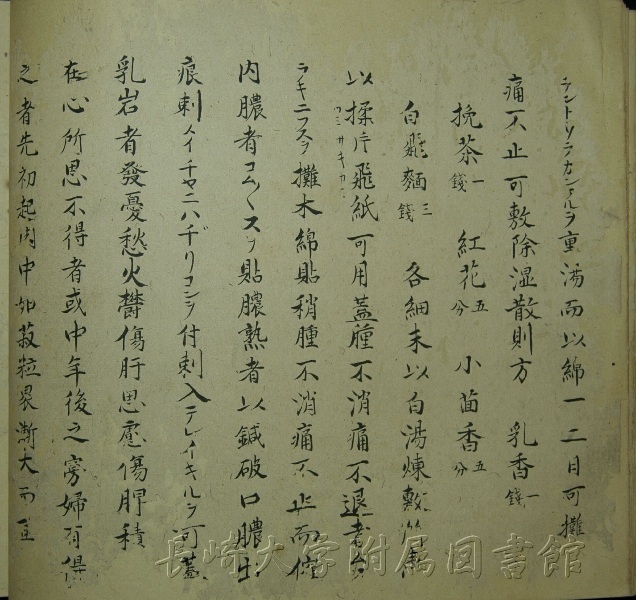 テントリテカシアルヲ重湯而以綿一二日可攤
痛不止可敷除湿散則方　乳香一錢
挽茶一錢　紅花五分　小茴香五分
白飛麵三錢　各細末以白湯煉敷
以揉片飛紙可用蓋腫不消痛不退者
ラキニフスヲ攤木綿貼稍腫不消痛不止而
内膿者コムヘスヲ貼膿熟者以鍼破口膿出
痕刺イチヤニハヂリコンヲ付刺入テレイキルヲ可蓋
乳岩者發憂愁火欝傷肝思慮傷脾積
在心所思不得者或中年後之寡婦有得
之者先初起肉中如菽粒畏漸大而
長崎大学附属図書館